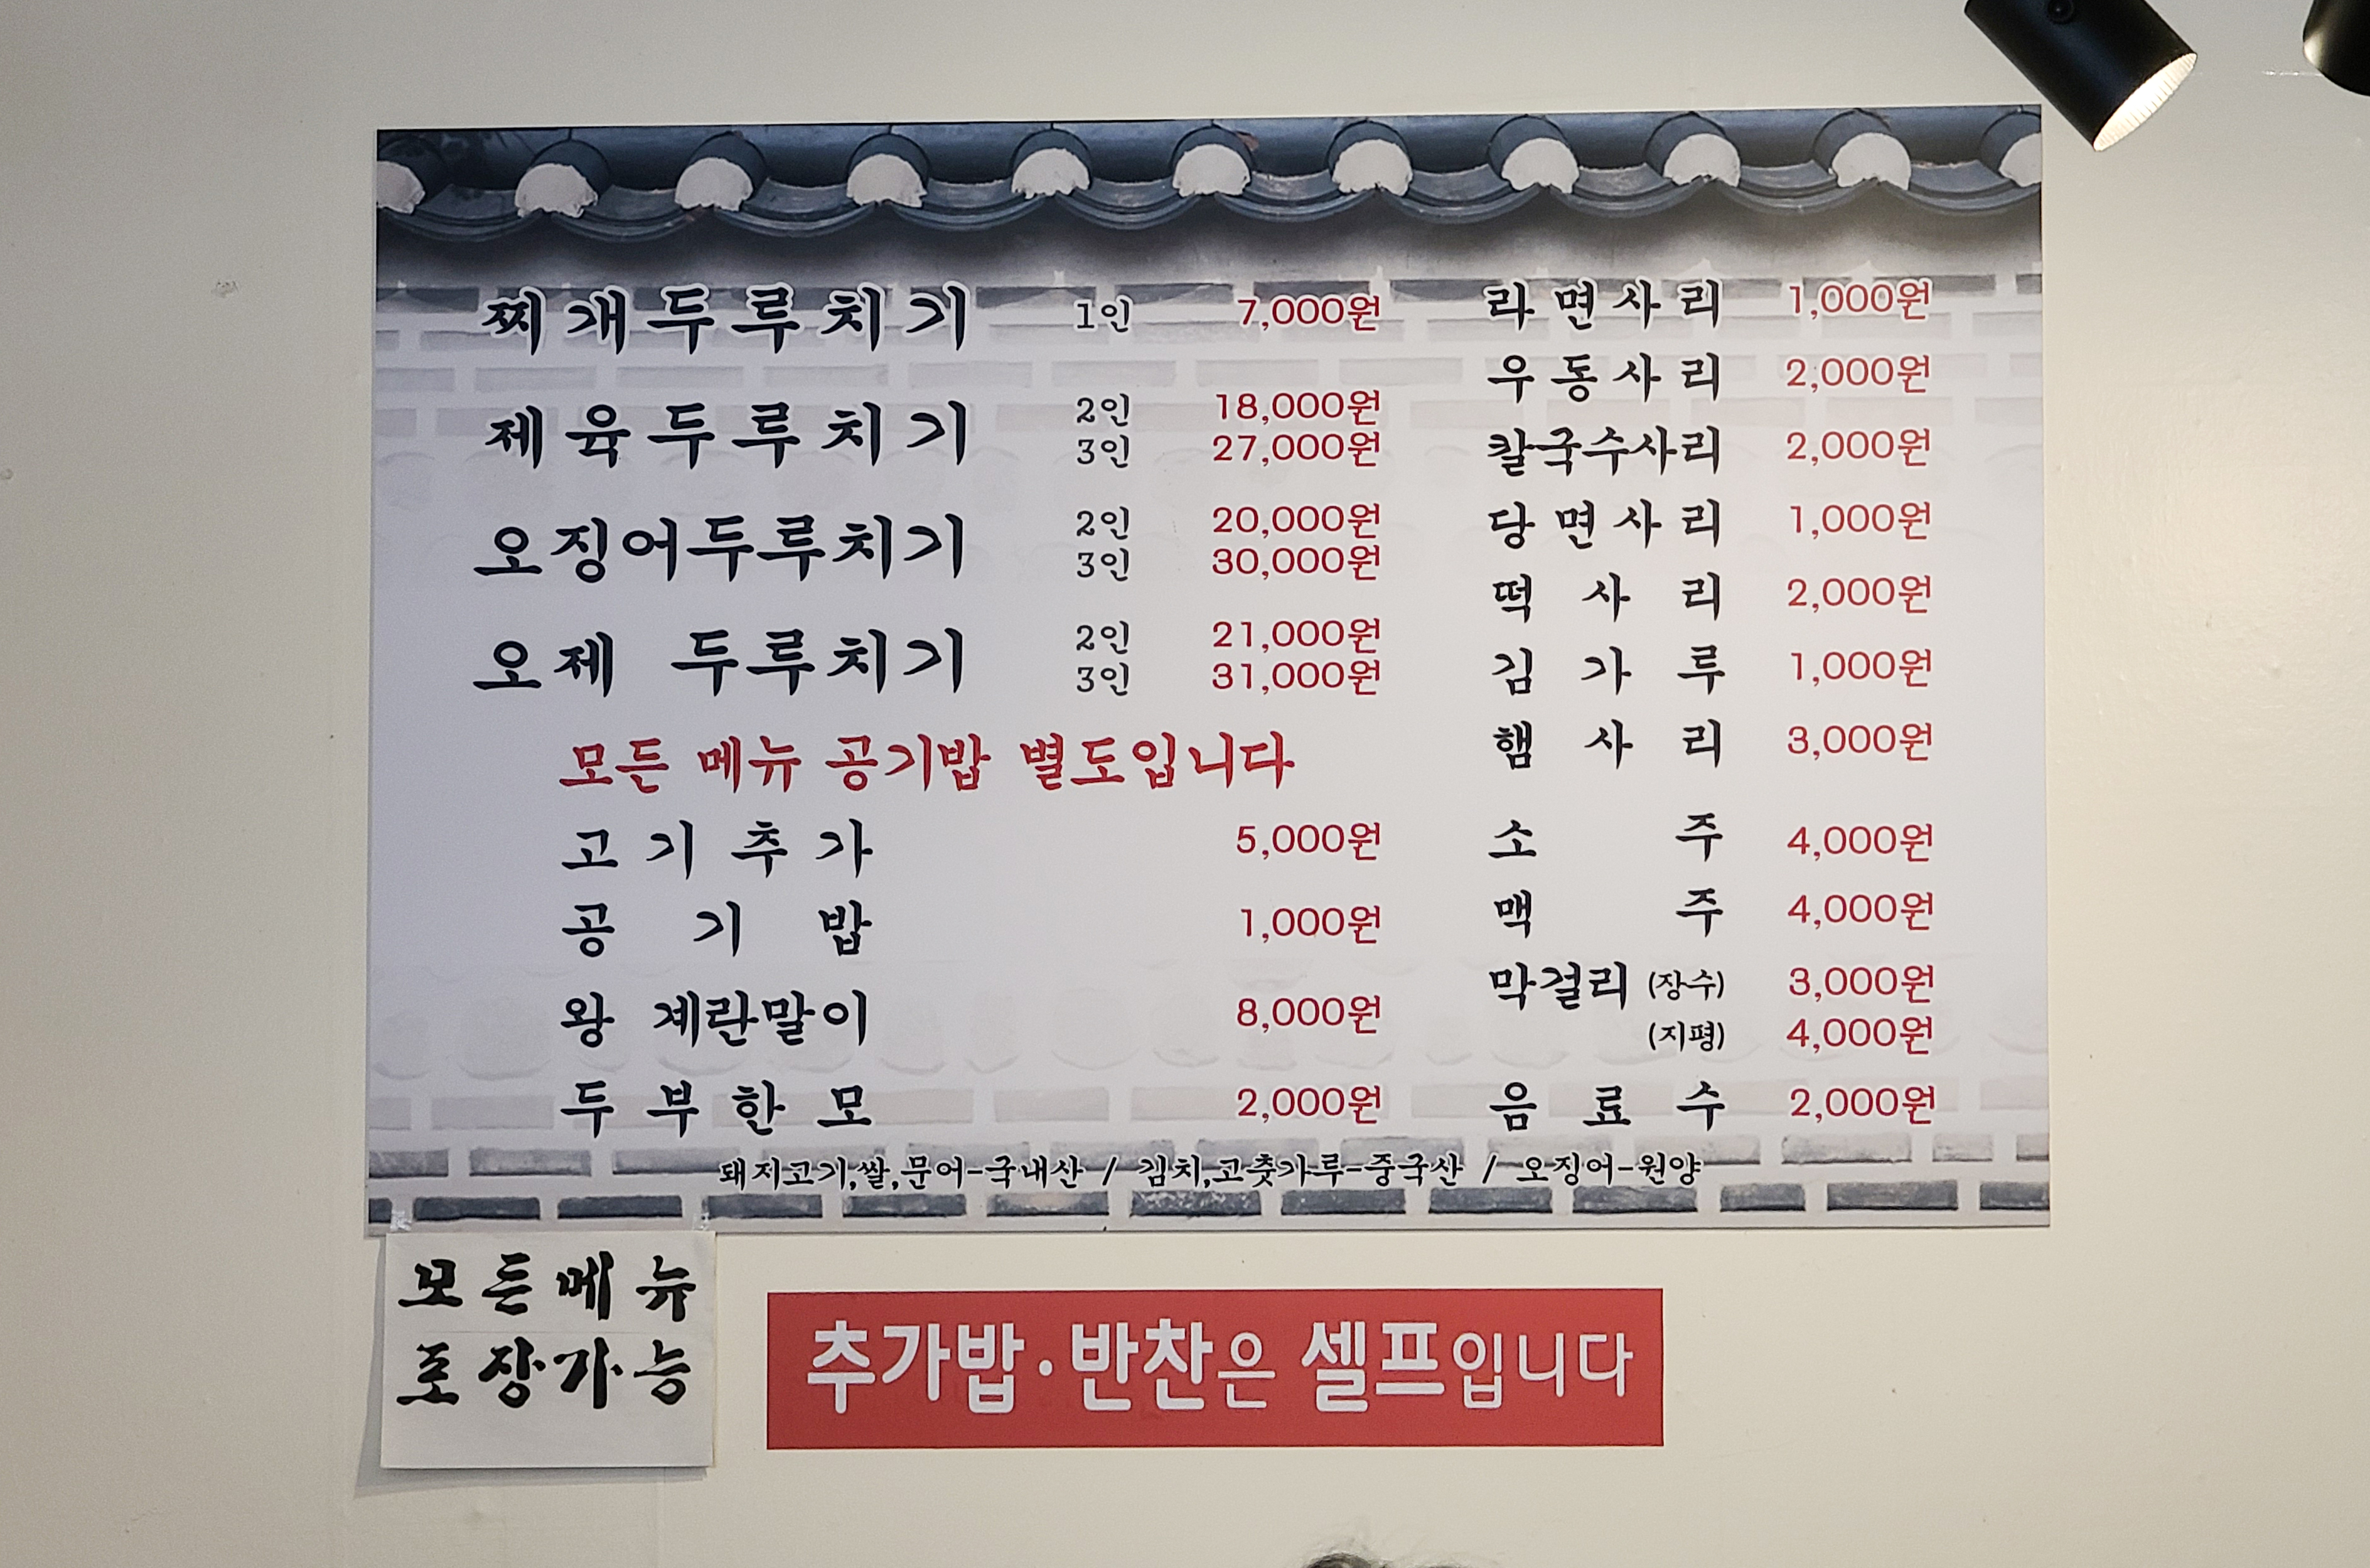 찌개두루치기 1인 7,000원
제육두루치기 2인 18,000원
3인 27,000원
오징어두루치기 2인 20,000원
3인 30,000원
오제 두루치기 2인 21,000원
3인 31,000원
모든 메뉴 공기밥 별도입니다
고기추가 5,000원
공기밥 1,000원
왕 계란말이 8,000원
두부한모 2,000원
라면사리 1,000원
우동사리 2,000원
칼국수사리 2,000원
당면사리 1,000원
떡사리 2,000원
김가루 1,000원
햄사리 3,000원
소주 4,000원
맥주 4,000원
막걸리 (장수) 3,000원
(지평) 4,000원
음료수 2,000원
돼지고기,쌀,문어-국내산 / 김치,고춧가루-중국산 / 오징어-원양
모든메뉴
포장가능
추가밥·반찬은 셀프입니다